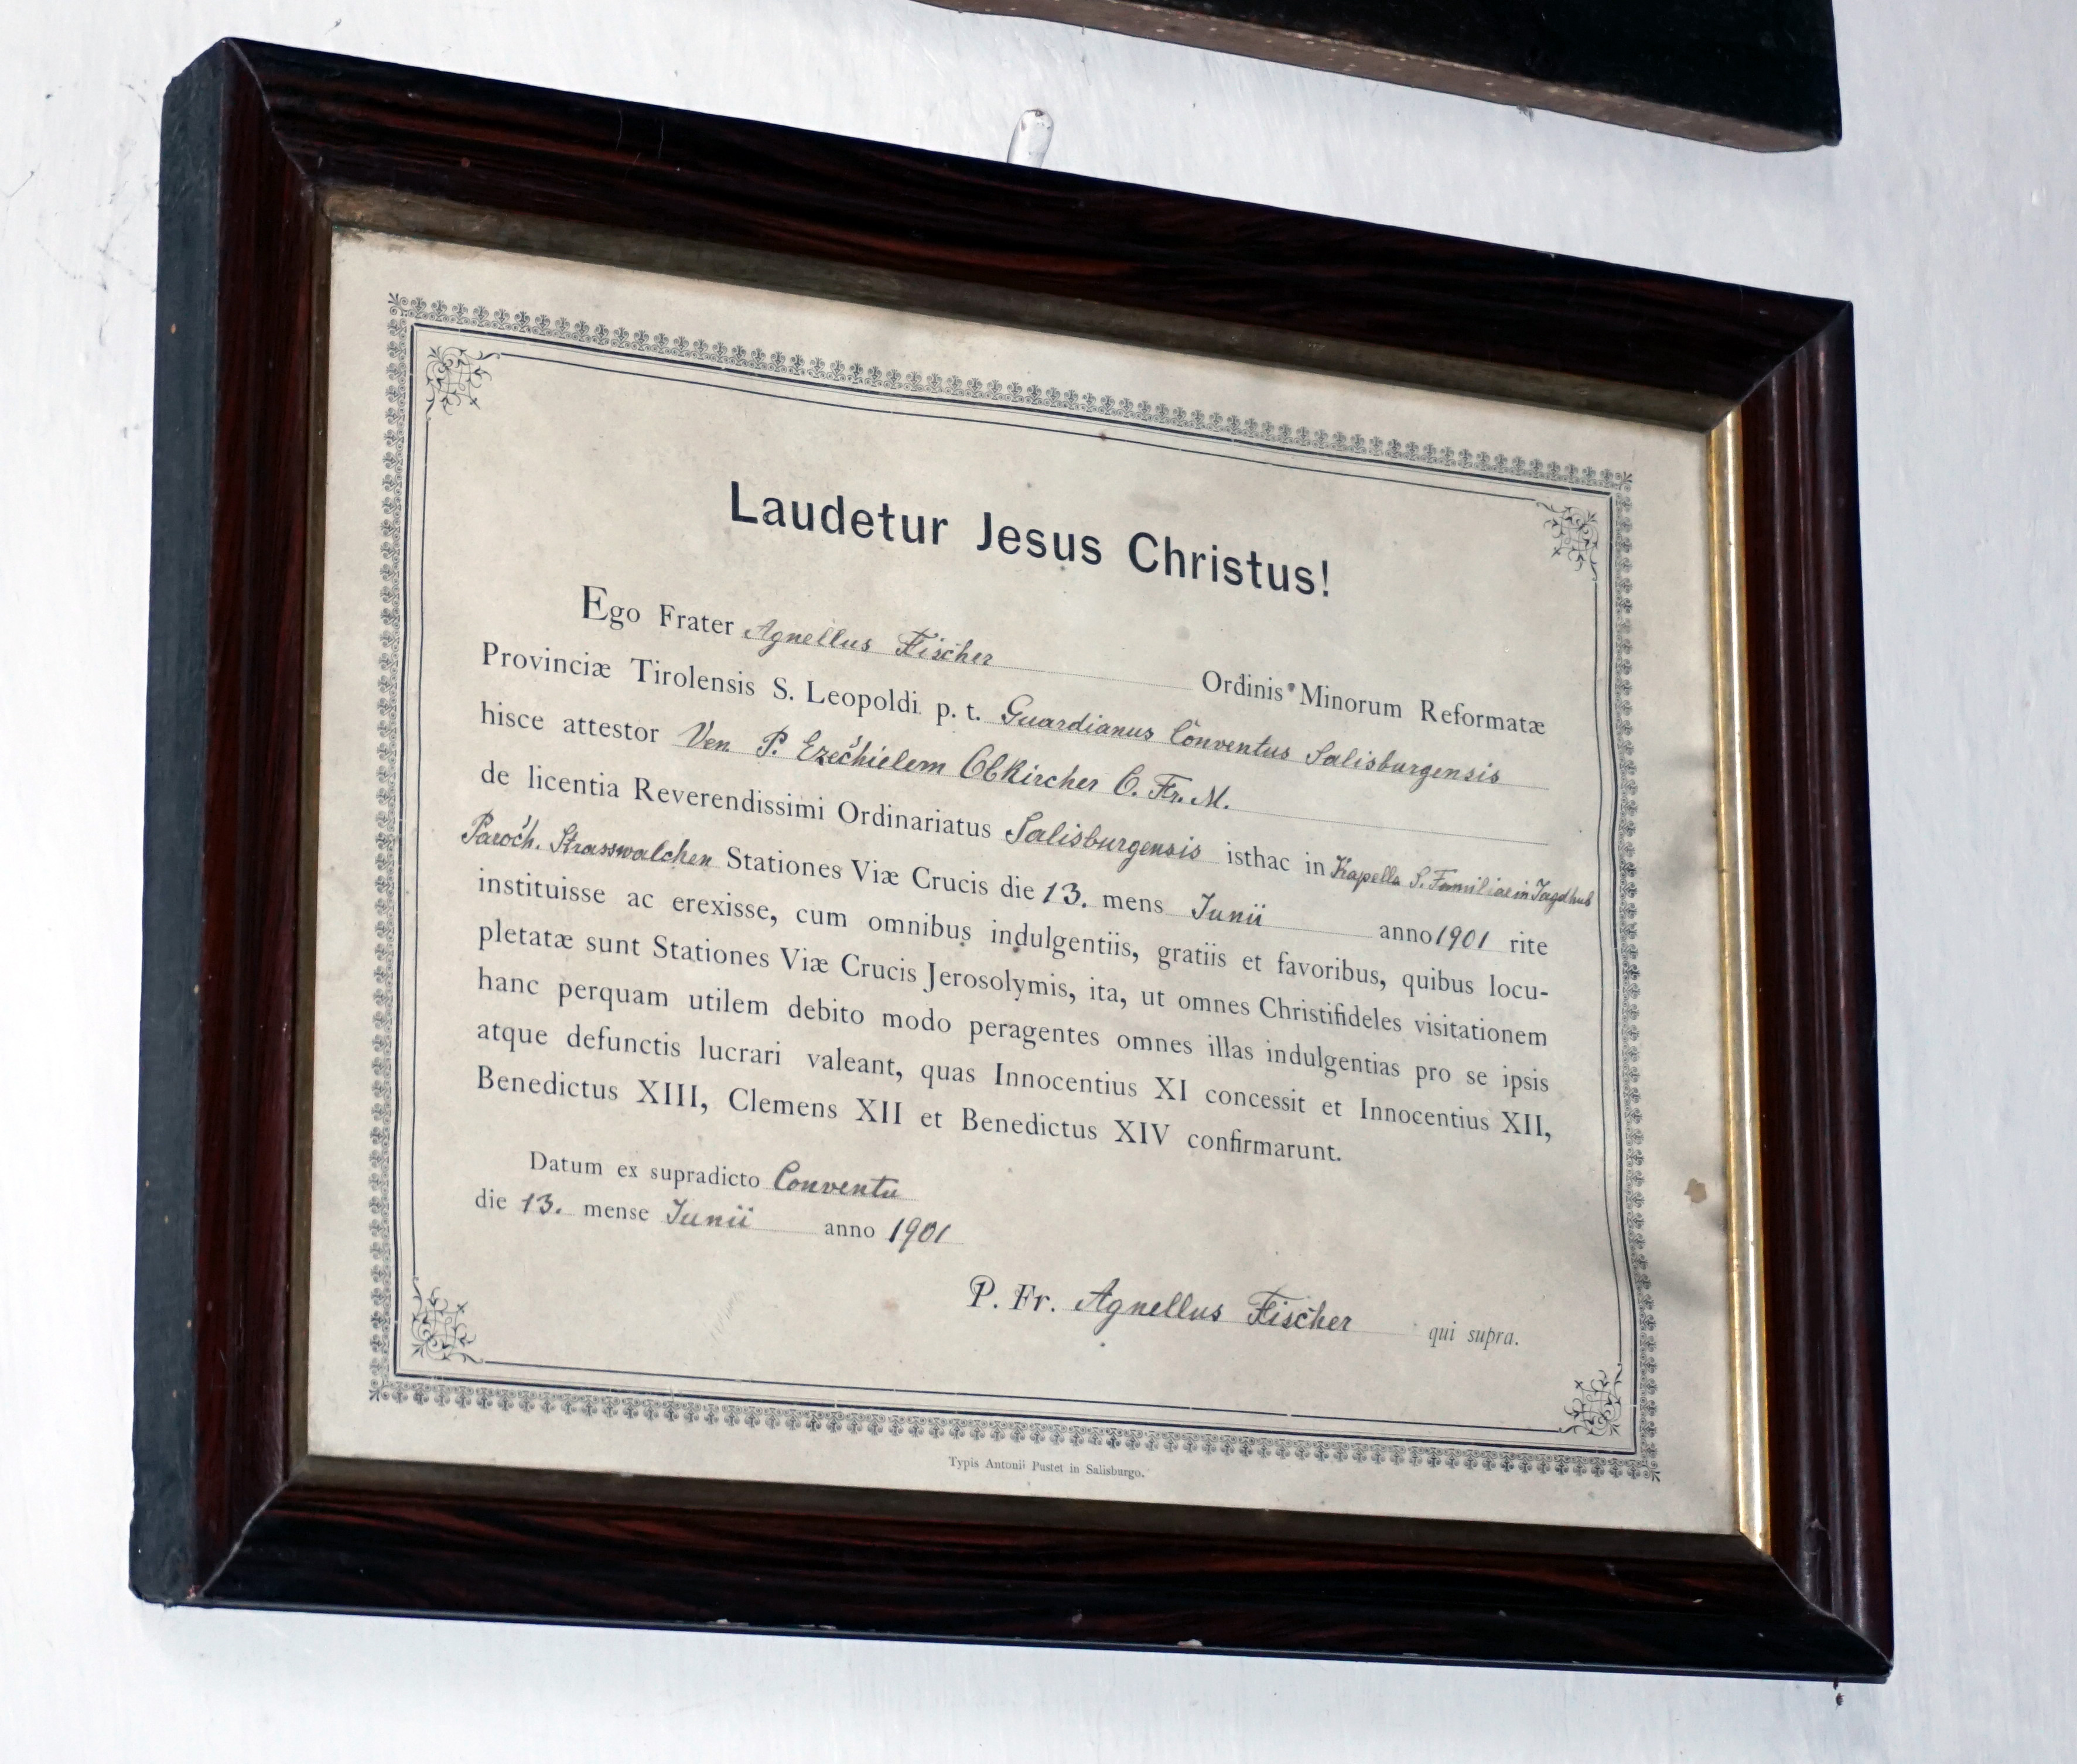 Laudetur Jesus Christus!
Ego Frater Agnellus Fischer Ordinis Minorum Reformatæ
Provinciæ Tirolensis S. Leopoldi p. t. Guardianus Conventus Salisburgensis
hisce attestor Ven. P. Ezechielem Obkircher O. Fr. M.
de licentia Reverendissimi Ordinariatus Salisburgensis isthac in Kapella S. Familiae in Jagdhub
Paroch. Strasswalchen Stationes Viæ Crucis die 13. mens Junii anno 1901 rite
instituisse ac erexisse, cum omnibus indulgentiis, gratiis et favoribus, quibus locu-
pletatæ sunt Stationes Viæ Crucis Jerosolymis, ita, ut omnes Christifideles visitationem
hanc perquam utilem debito modo peragentes omnes illas indulgentias pro se ipsis
atque defunctis lucrari valeant, quas Innocentius XI concessit et Innocentius XII,
Benedictus XIII, Clemens XII et Benedictus XIV confirmarunt.
Datum ex supradicto Conventu
die 13. mense Junii anno 1901
P. Fr. Agnellus Fischer qui supra.
Typis Antonii Pustet in Salisburgo.